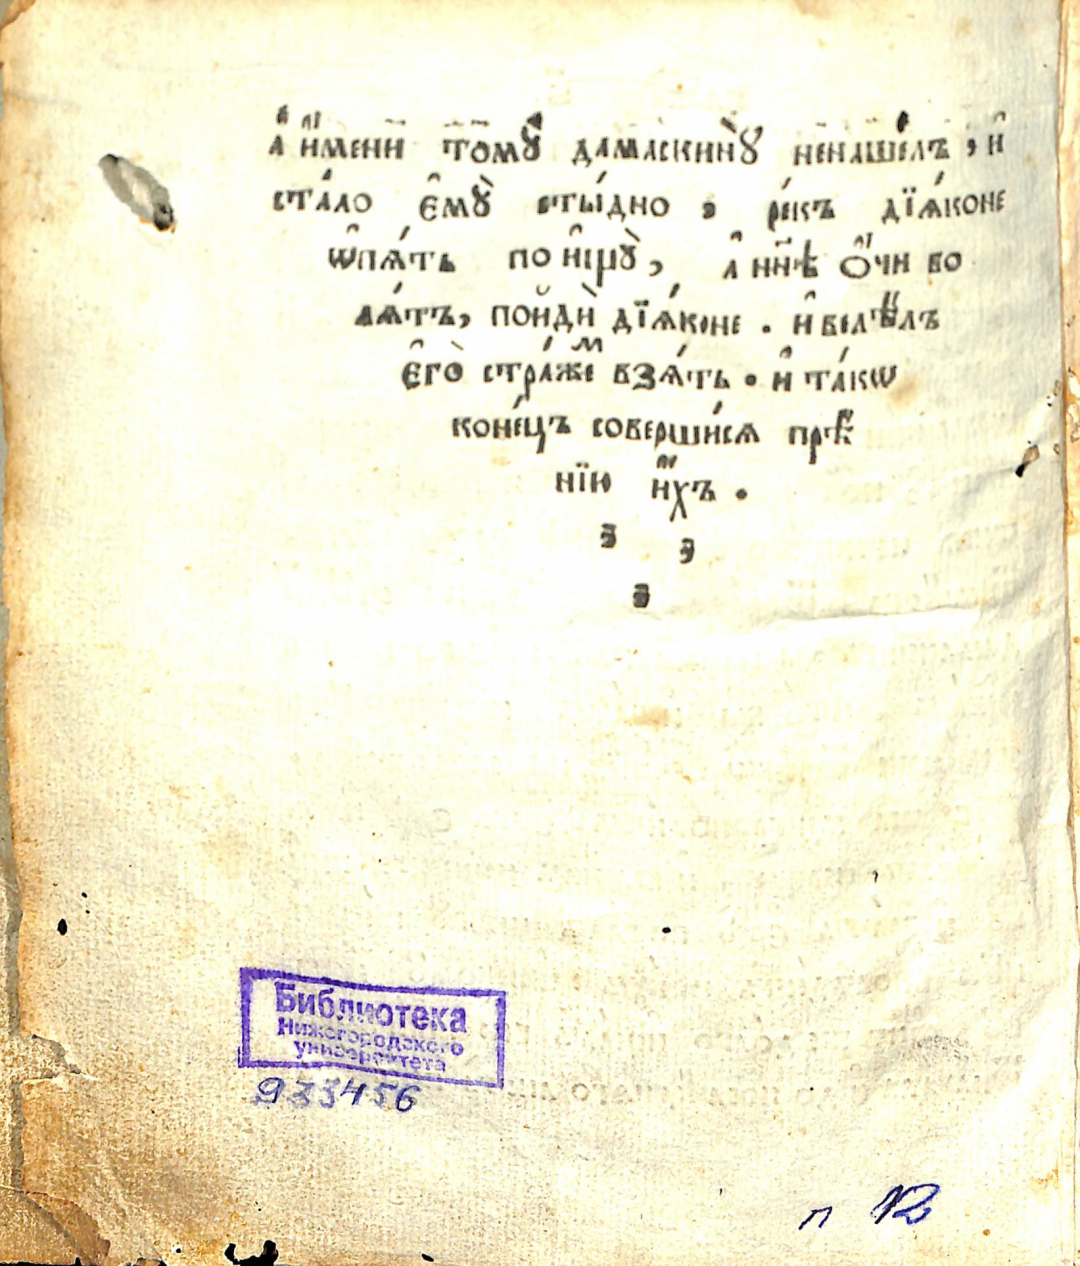 а҆ и҆мени томꙋ̀ дамаскинꙋ̀ ненаше́лъ , и҆
ста́ло є҆мꙋ̀ сты́дно , ре́къ дїѧ́коне
ѡ҆пѧ́ть по ни́мꙋ̀ , а҆ ннѣ ѻ҆́чи бо
лѧ́тъ, поиди̾ дїѧ́коне . и҆ велѣ́лъ
є҆го̀ стра́жеⷨ взѧ́ть . и҆ та́кѡ
коне́цъ соверши́сѧ прѣ́
нїю и҆́хъ .
Библиотека
Нижегородского
университета
933456
п 12